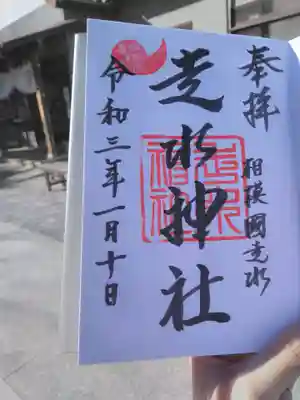 奉拝
相模國走水
走水神社
令和三年一月十日